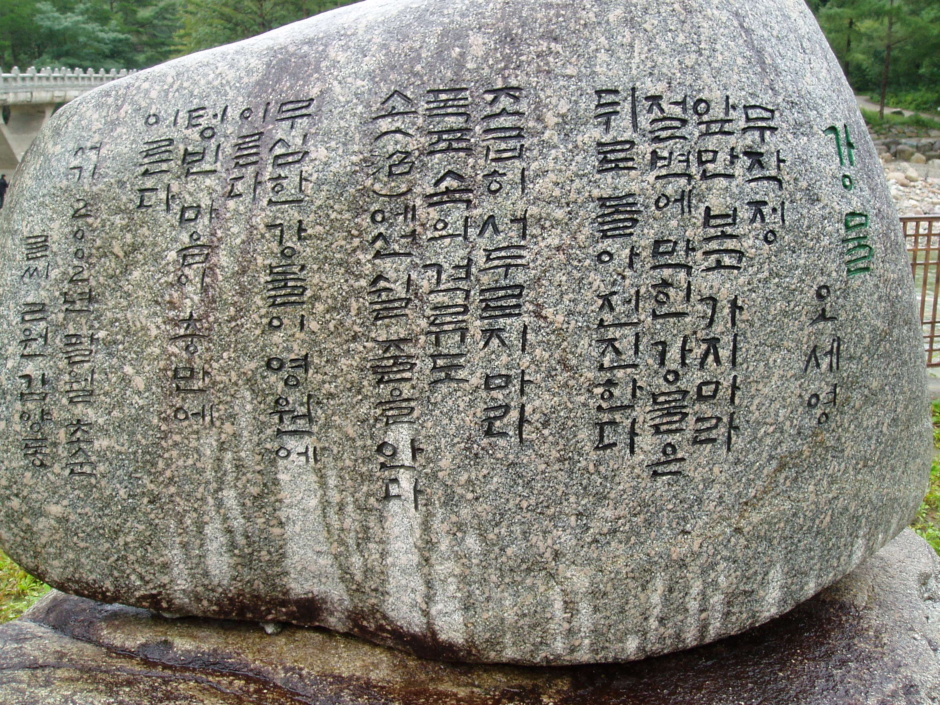 강물
오세영
무작정
앞만 보고 가지마라
절벽에 막힌 강물은
뒤로 돌아 전진한다
조급히 서두르지 마라
폭포속의 격류도
소(沼)에선 쉴 줄을 안다
무심한 강물이 영원에
이른다
텅빈 마음이 충만에
이른다
서기 2002년 팔월 초순
글씨 근원 김양동